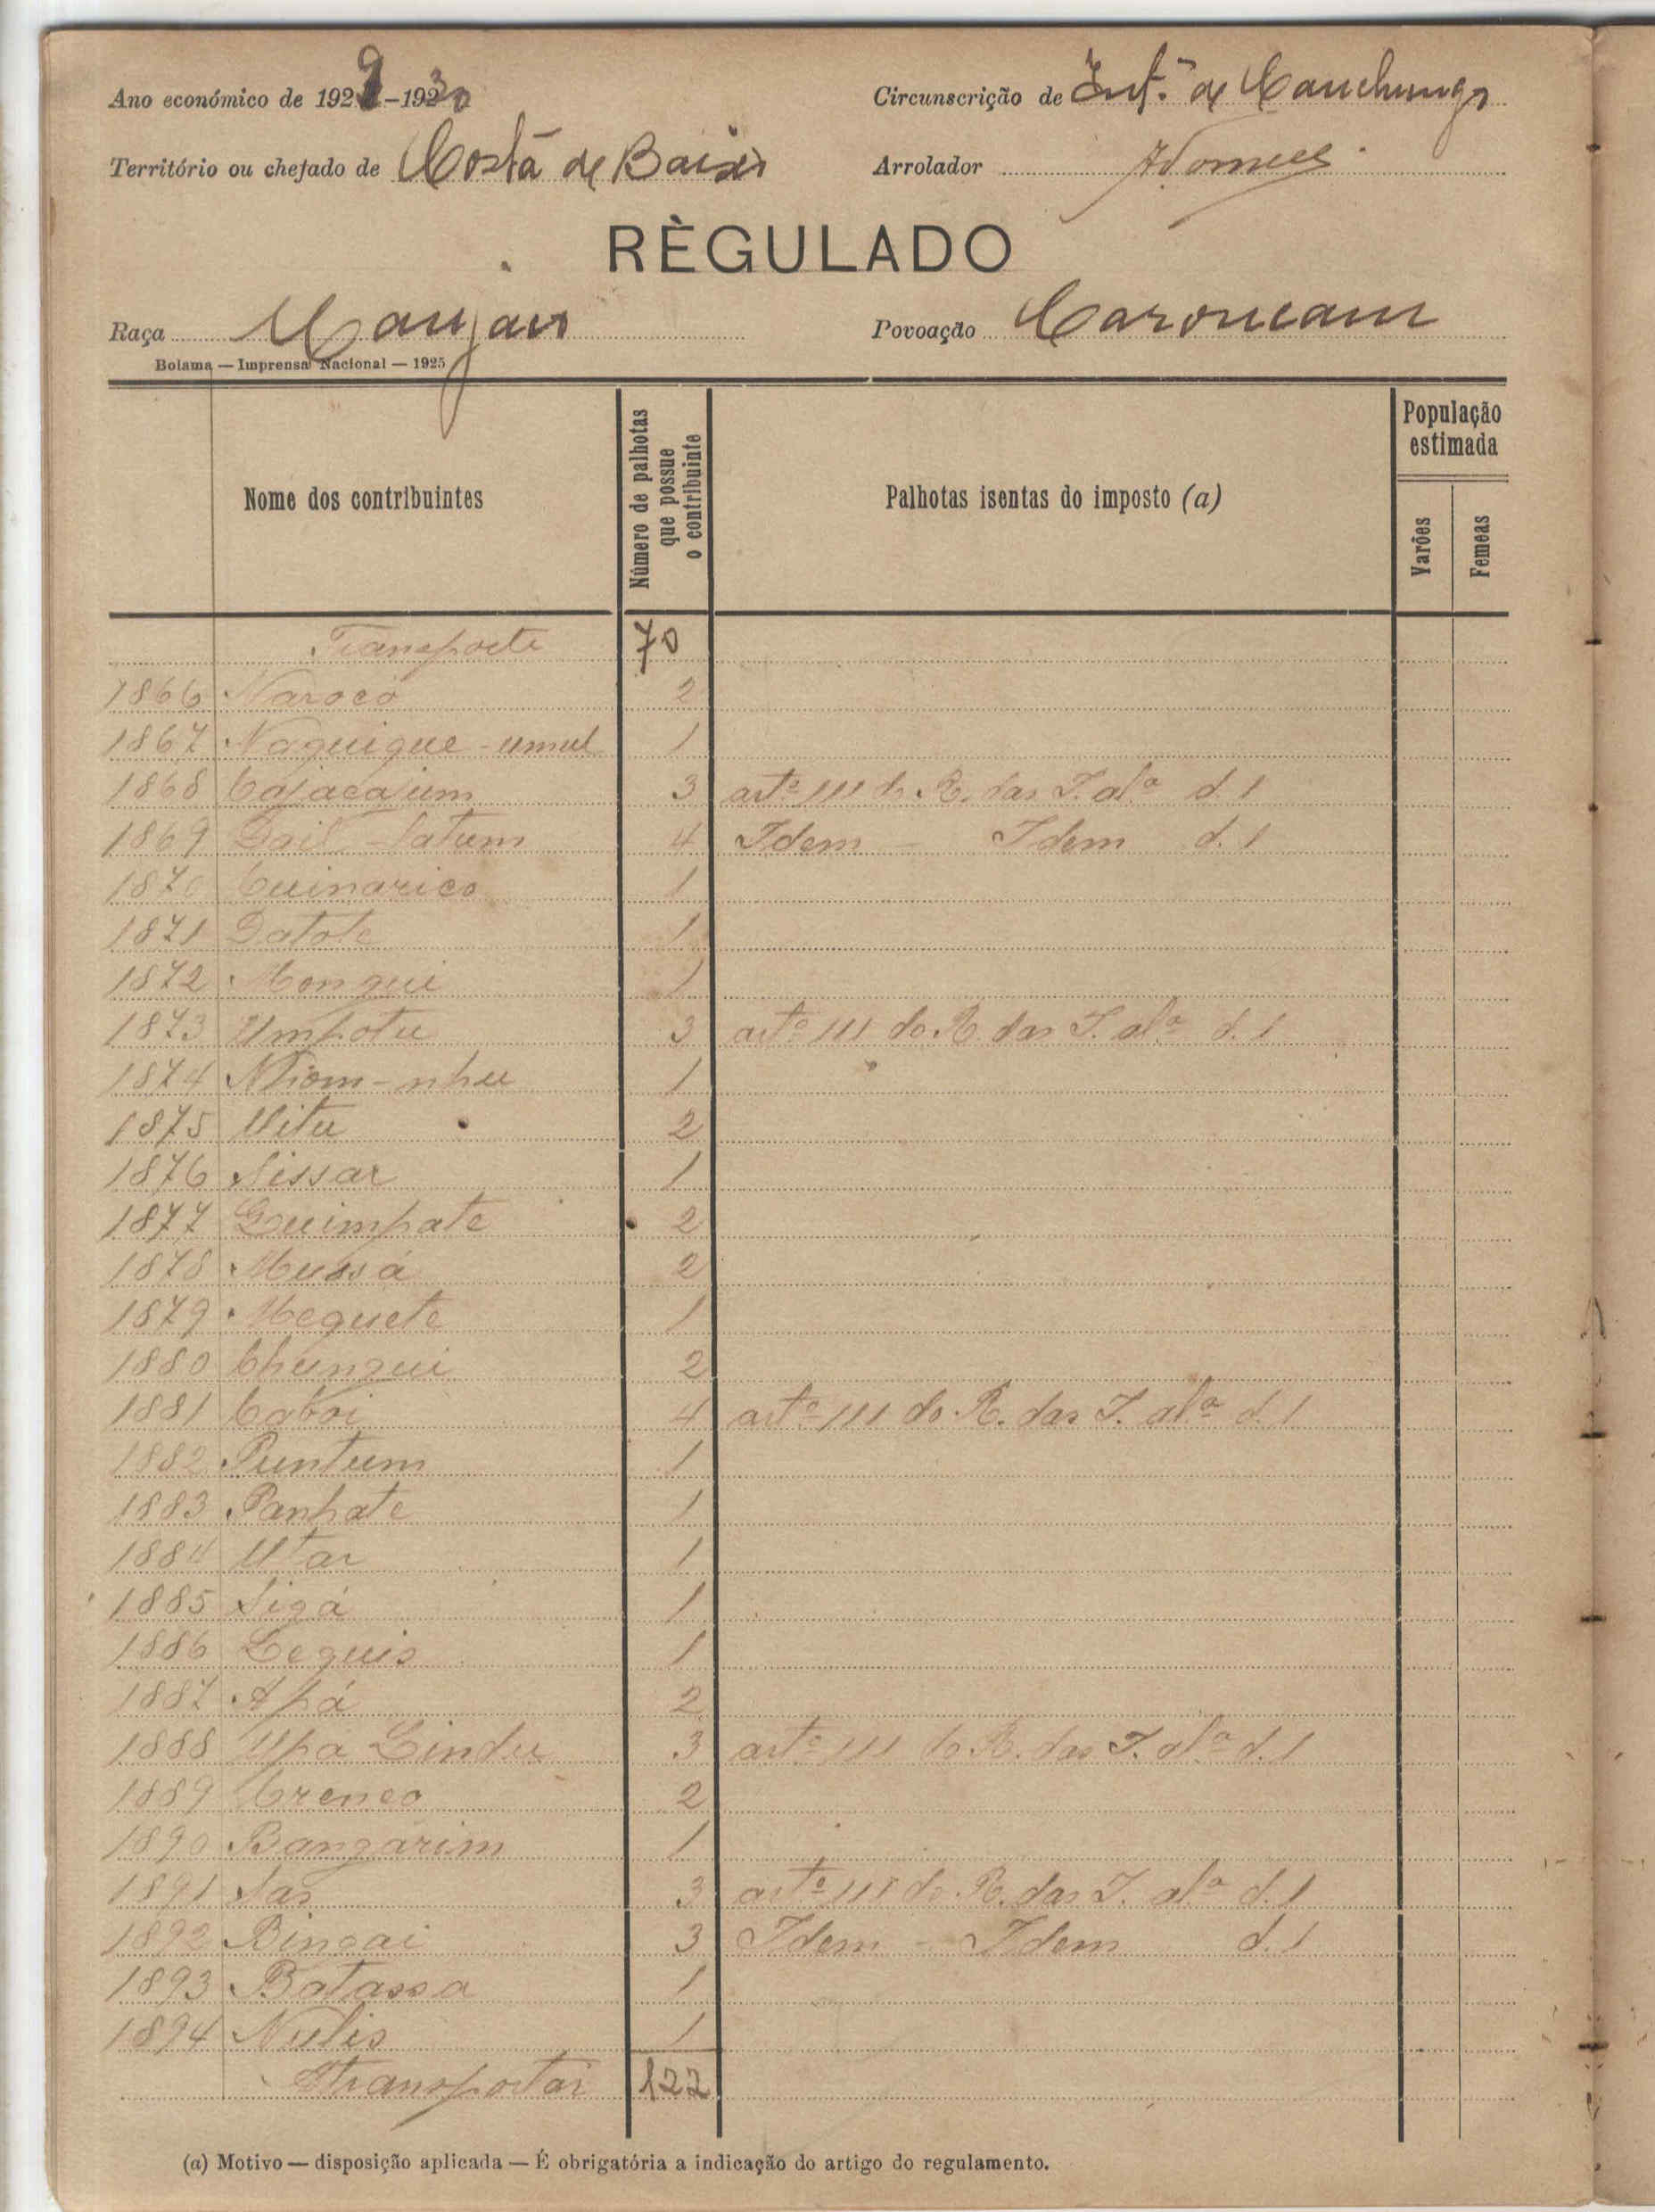 Ano económico de 1929-1930
Circunscrição de Int.ª de Canchungo
Território ou chefado de Costa de Baixo
Arrolador
RÈGULADO
Raça Manjaco
Povoação
Bolama — Imprensa Nacional — 1925
Nome dos contribuintes
Número de palhotas que possue o contribuinte
Palhotas isentas do imposto (a)
População estimada
Varões
Femeas
Transporte 70
1866 Narocó 2
1867 Naquique-umul 1
1868 Cajacajum 3 artº 111 do R. das I. alª d. 1
1869 4 Idem - Idem d. 1
1870 Cuinarico 1
1871 Datole 1
1872 Mongui 1
1873 Umpotu 3 artº 111 do R. das I. alª d. 1
1874 Nhom-nhu 1
1875 Vitu 2
1876 Sissar 1
1877 Guimpate 2
1878 Mussá 2
1879 Meguete 1
1880 Chungui 2
1881 Caboi 4 artº 111 do R. das I. alª d. 1
1882 Puntum 1
1883 Panhate 1
1884 Utar 1
1885 Sigá 1
1886 Leguis 1
1887 Apá 2
1888 Upa Lindu 3 artº 111 do R. das I. alª d. 1
1889 2
1890 Bangarim 1
1891 Sas 3 artº 111 do R. das I. alª d. 1
1892 Bincai 3 Idem - Idem d. 1
1893 Batassa 1
1894 Nulis 1
A transportar 122
(a) Motivo — disposição aplicada — É obrigatória a indicação do artigo do regulamento.